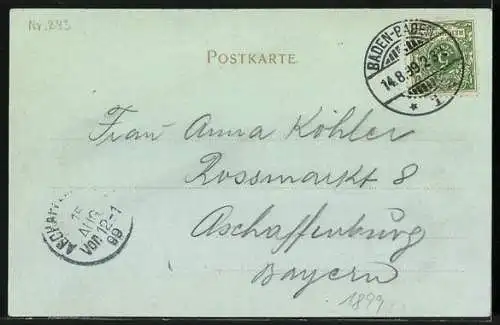 Nr. 243
POSTKARTE
BADEN-BADEN
14.8.99.2-3
* 1.
Frau Anna Köhler
Rossmarkt 8
Aschaffenburg
Bayern
15
AUG
Von 12-1
99
1899